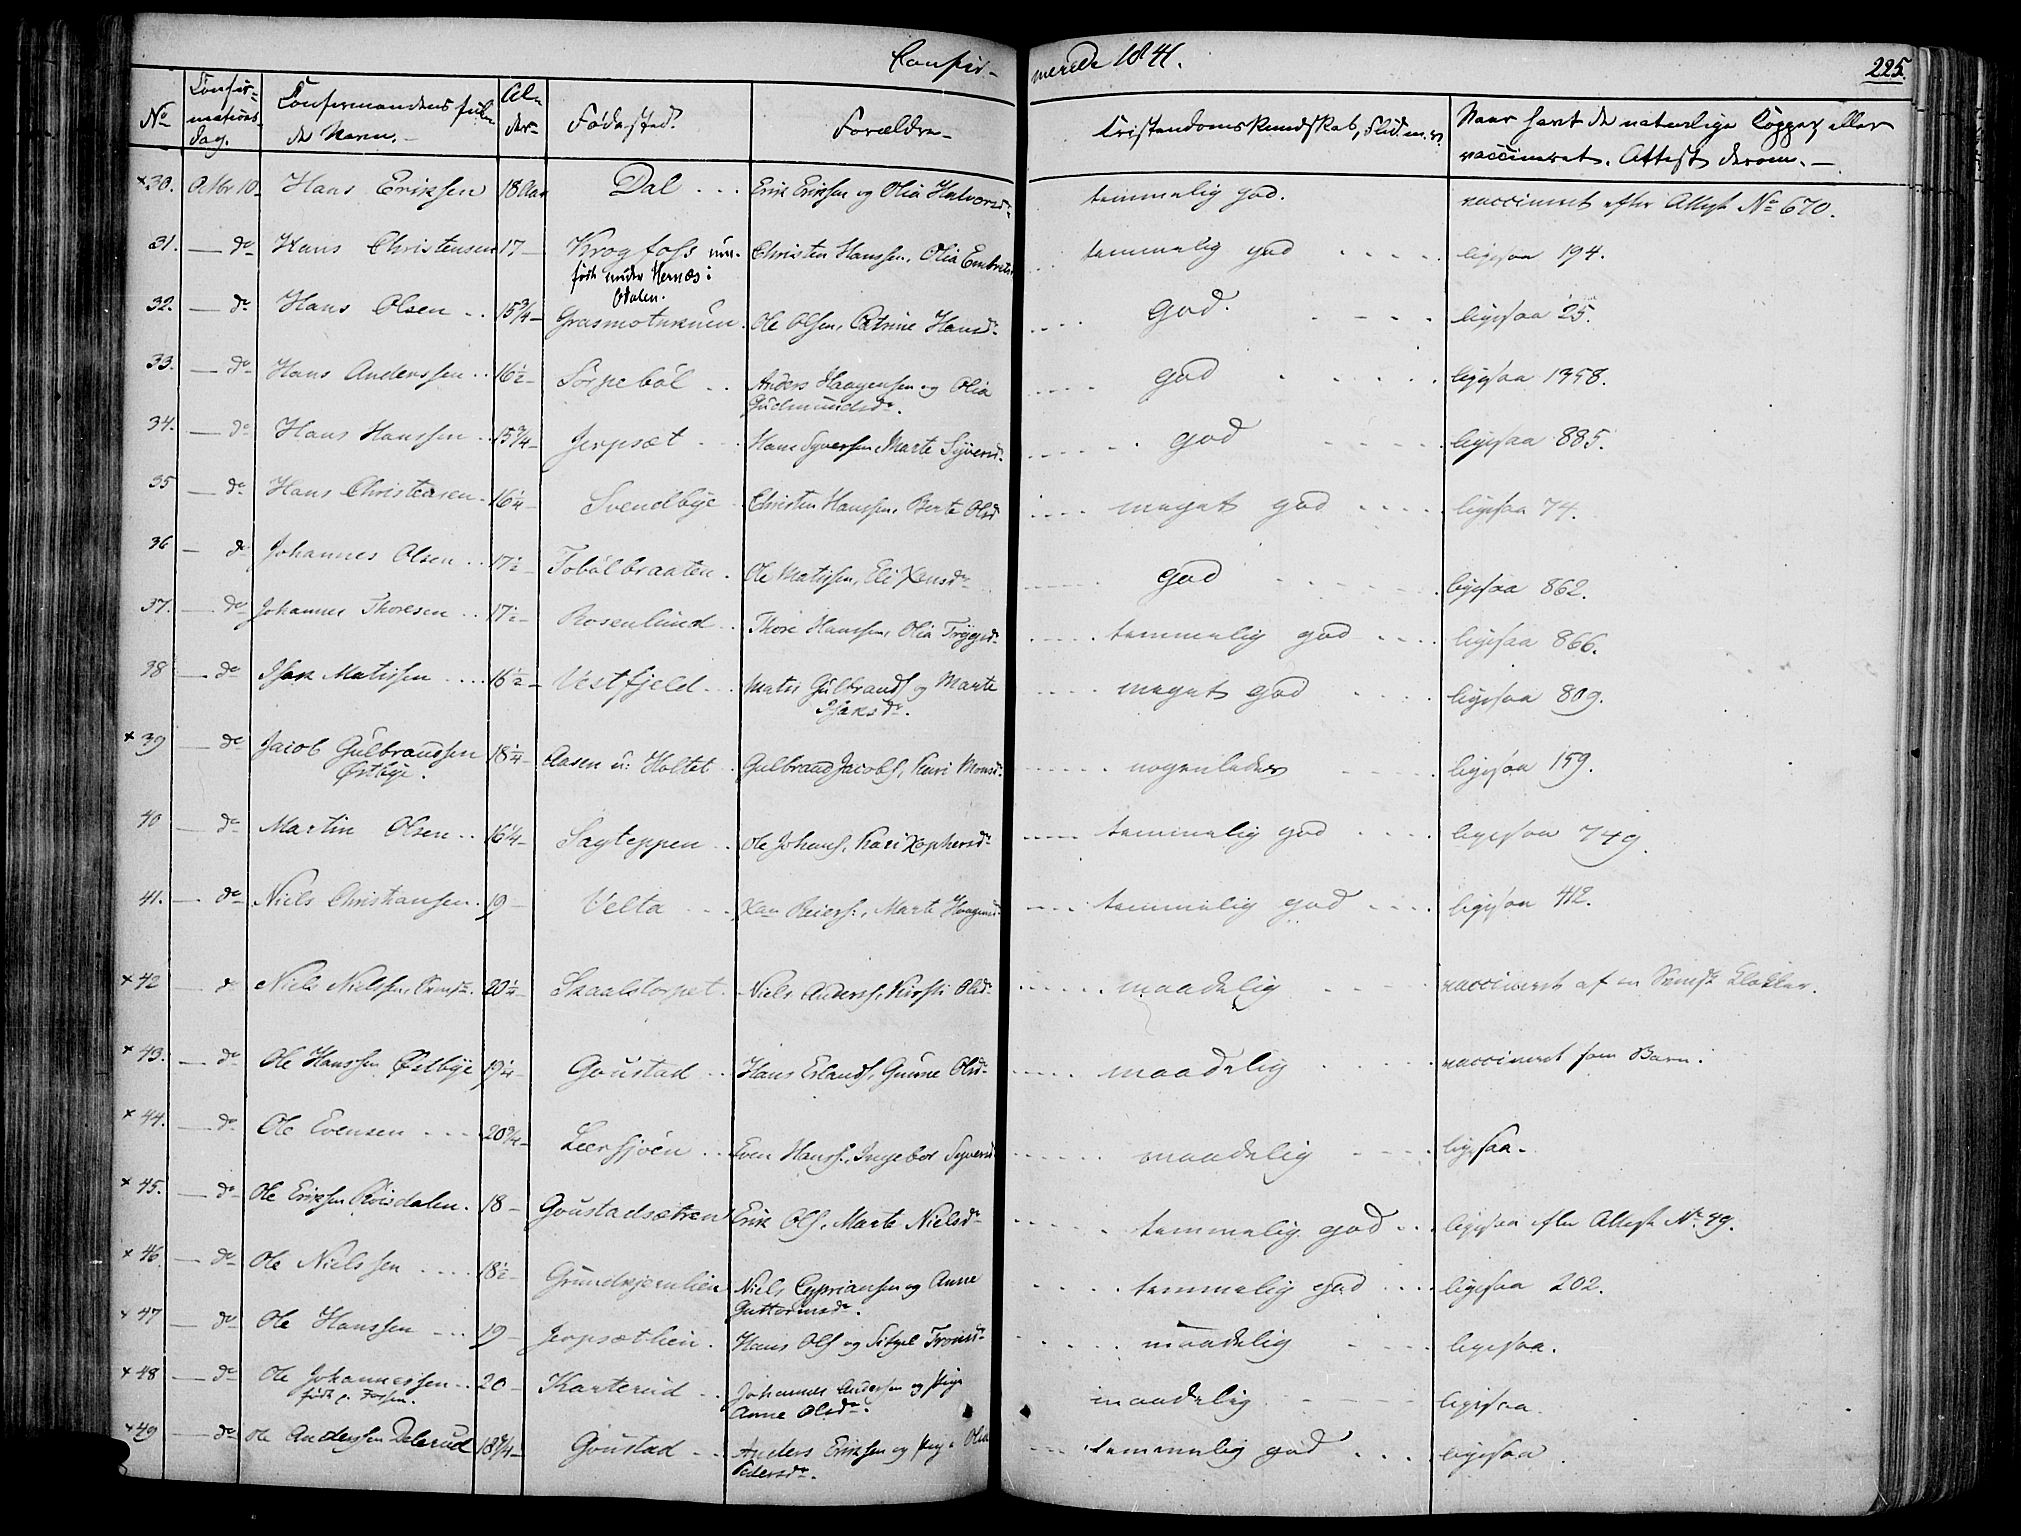 Confir- merede 1841. 225.
No Confir- mations- dag. Confirmandens fulde Navn. Alder Fødested. Forældre Kristendoms Kundskab, Flid m.v. Naar havt de naturlige Kopper eller vaccineret. Attest derom.
×30. Octbr 10 Hans Eriksen 18 Aar Dal Erik Eriksen og Olia Halvorsdr temmelig god. vaccineret efter Attest No 670.
31. do Hans Christensen 17 Krogfoss
født under Hernæs i Odalen. Christen Hanssen, Olia Embretsd temmelig god ligesaa 194.
32. do Hans Olsen 15 3/4 Grasmotunuen Ole Olsen, Catrine Hansdr God. ligesaa 25.
33. do Hans Anderssen 16 1/2 Sorpebøl Anders Haagensen og Olia
Gudmundsdr. god ligesaa 1358.
34. do Hans Hanssen 15 3/4 Jerpset Hans Syversen, Marte Syversdr god ligesaa 885.
35 do Hans Christensen 16 1/4 Svendbye Christen Hanssen, Berte Olsd meget god ligesaa 74.
36 do Johannes Olsen 17 1/2 Tobølbraaten Ole Matissen, Eli Hansdr god ligesaa 862.
37. do Johannes Thoresen 17 1/2 Rosenlund Thore Hanssen, Olia Tryggsdr temmelig god ligesaa 866.
38 do Isak Matissen 16 1/2 Vestfjeld Matis Gulbrands og Marte
Isaksdr. meget god ligesaa 809.
×39 do Jacob Gulbrandsen
Østbye. 18 1/4 Aasen u: Holtet Gulbrand Jacobs, Kari Monsdr nogenledes ligesaa 159.
40 do Martin Olsen 16 1/4 Sagteppen Ole Johans, Kari Xophersdr temmelig god ligesaa 749.
41. do Niels Christiansen 19 Velta Xan Reiers, Marte Haagensd temmelig god ligesaa 412.
×42 do Niels Nielssen 20 1/4 Skaalstorpet Niels Anderss, Kirsti Olsdr maadelig vaccineret af en Svensk Klokker.
×43. do Ole Hanssen Østbye 19 1/4 Goustad Hans Erlands, Gunne Olsdr maadelig vaccineret som Barn.
×44. do Ole Evensen 20 3/4 Leersjøen Even Hanss, Ingebor Syversd maadelig ligesaa.
×45. do Ole Eriksen Roisdalen 18 Goustadsætren Erik Ols, Marte Nielsdr temmelig god ligesaa efter Attest No 49.
×46. do Ole Nielssen 18 1/2 Grundtjernlien Niels Cypriansen og Anne
Guttormsdr. temmelig god ligesaa 202.
×47 do Ole Hanssen 19 Jerpsætlien Hans Ols og Sitzel Tronsdr maadelig ligesaa.
×48 do Ole Johannessen 20 Karterud Johannes Andersen og Pige
Anne Olsdr. maadelig ligesaa.
×49 do Ole Anderssen Dølerud 18 3/4 Goustad Anders Eriksen og Pige Olia
Pedersdr. temmelig god ligesaa